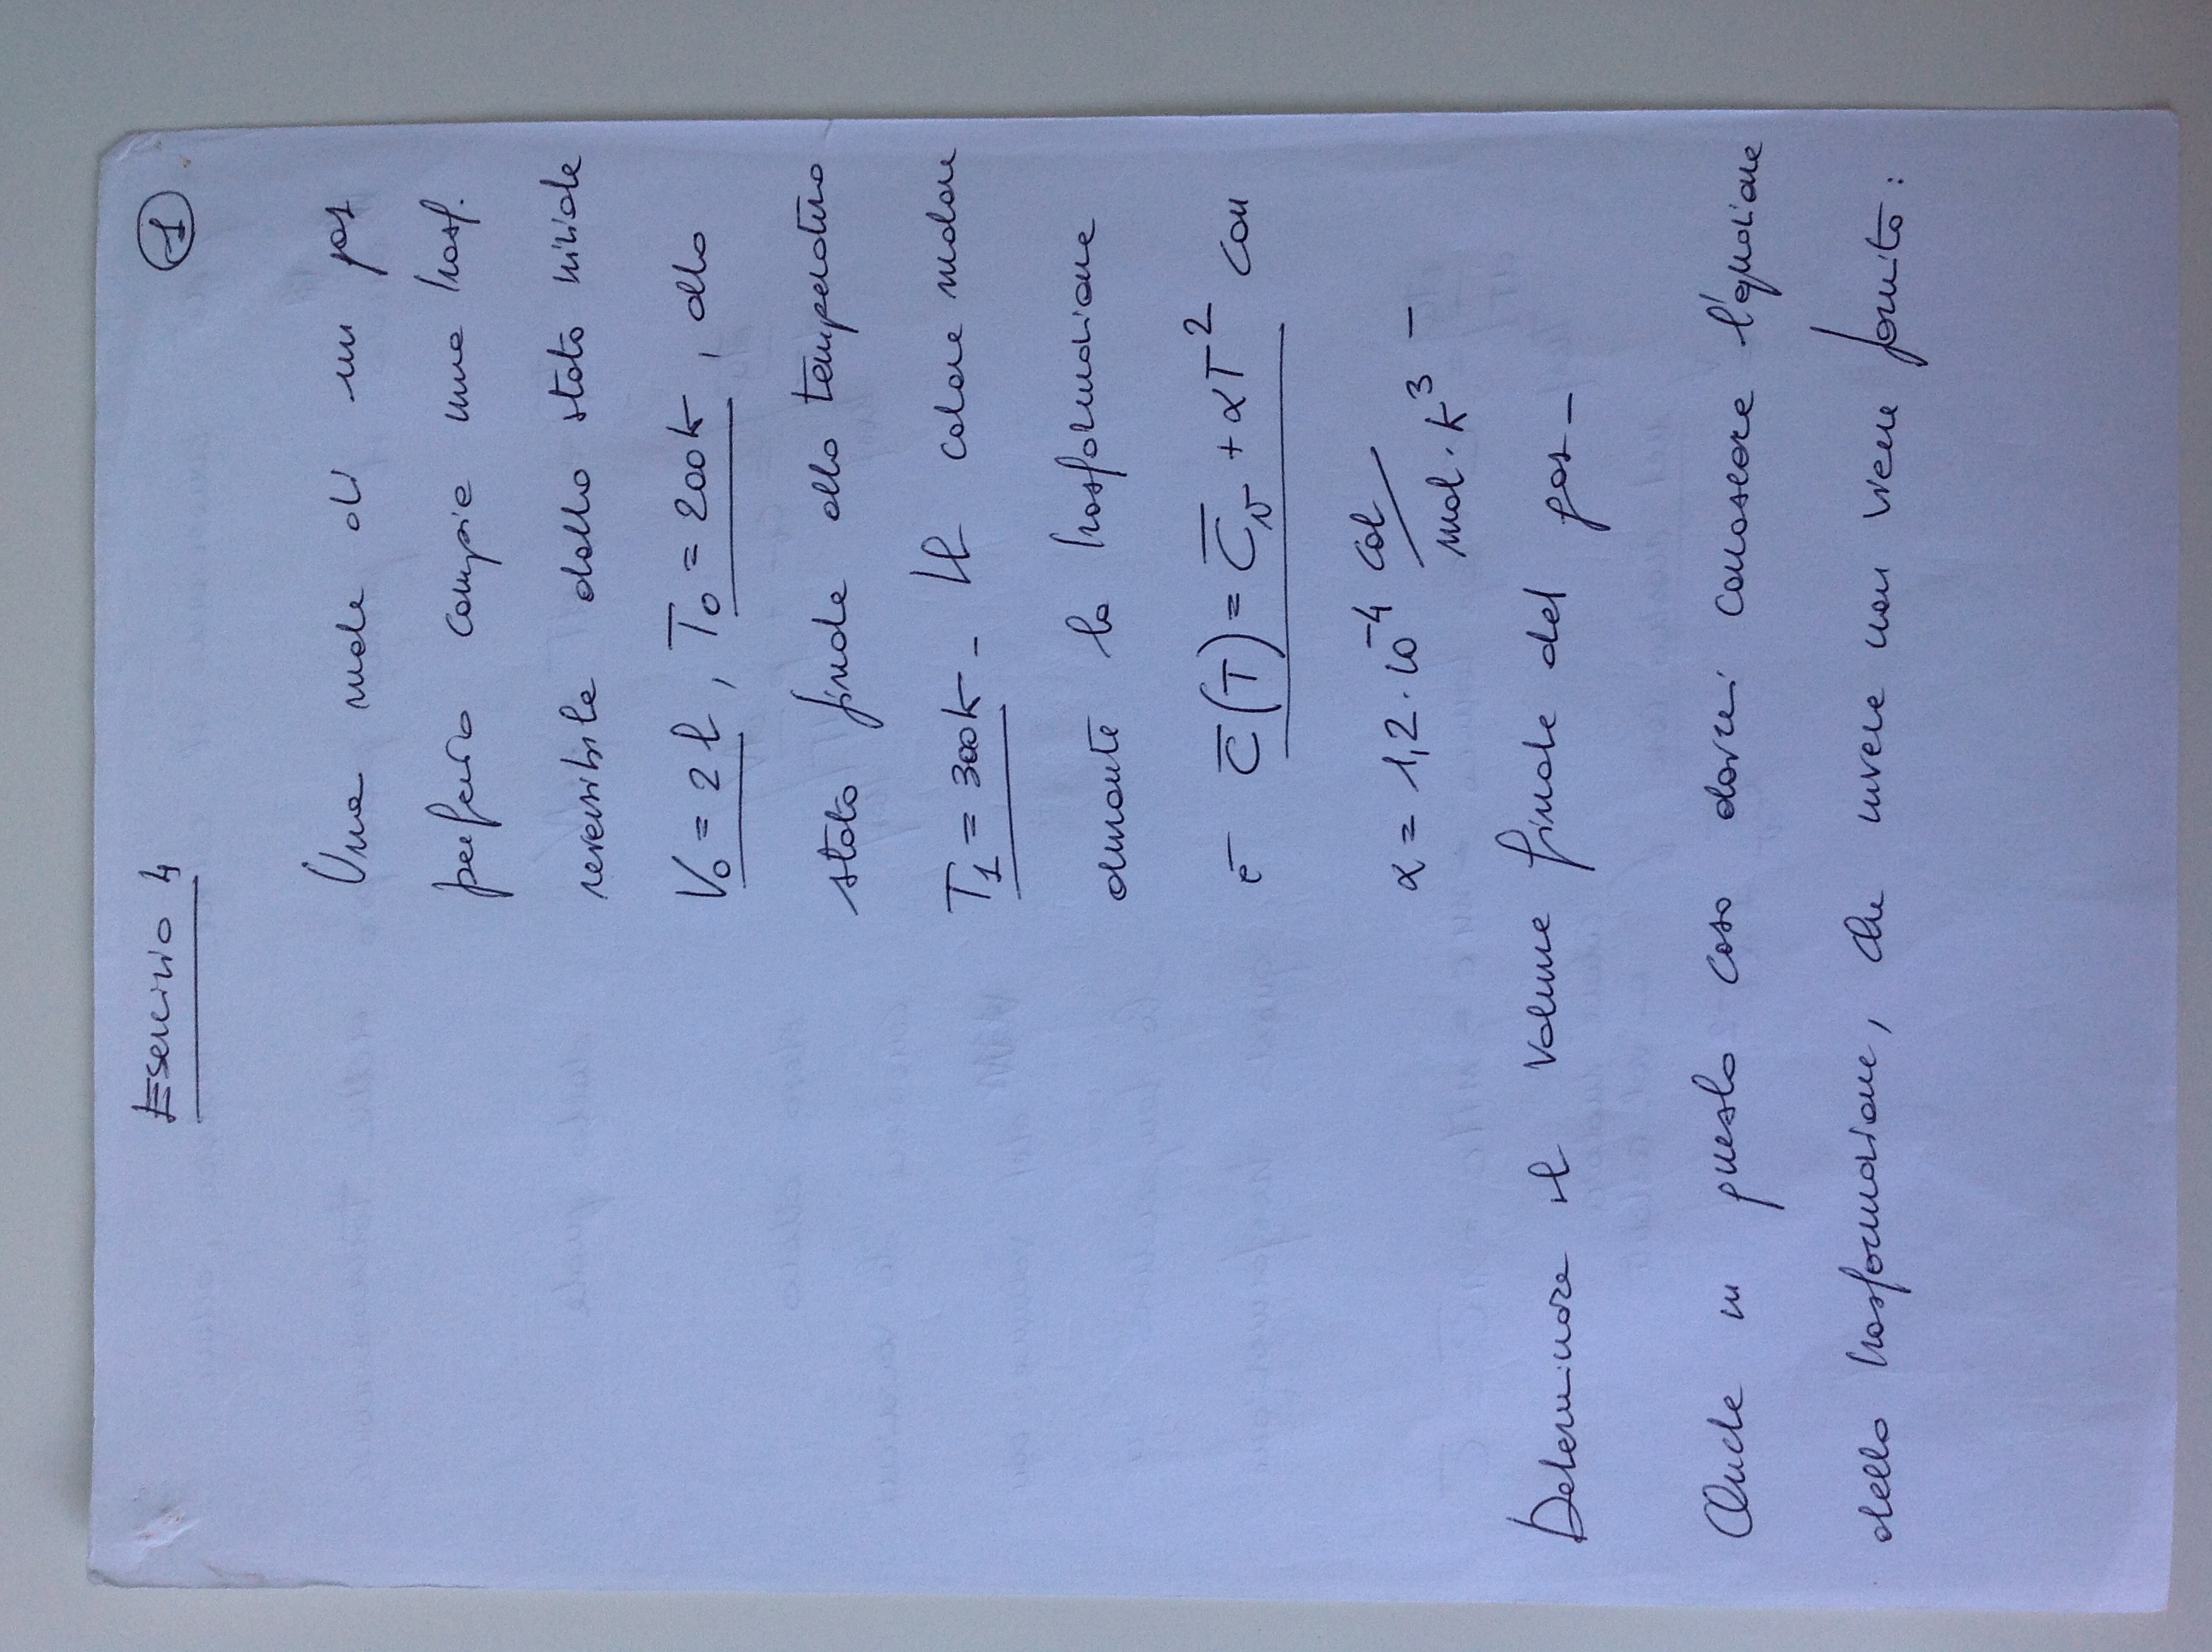 Esercizio 4
1
Una mole di un gas
perfetto compie una trasf.
reversibile dallo stato iniziale
V₀ = 2 l, T₀ = 200 K, allo
stato finale alla temperatura
T₁ = 300 K - Il calore molare
durante la trasformazione
è C̅(T) = C̅ᵥ + αT² con
α = 1,2 · 10⁻⁴ cal / mol · K³ -
Determinare il volume finale del gas -
Anche in questo caso dovrei conoscere l'equazione
della trasformazione, che invece non viene fornita: